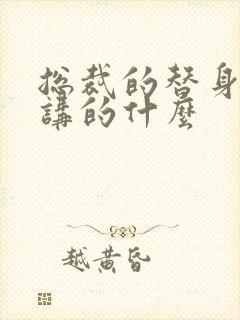 总裁的替身
講的什麼
越黄昏